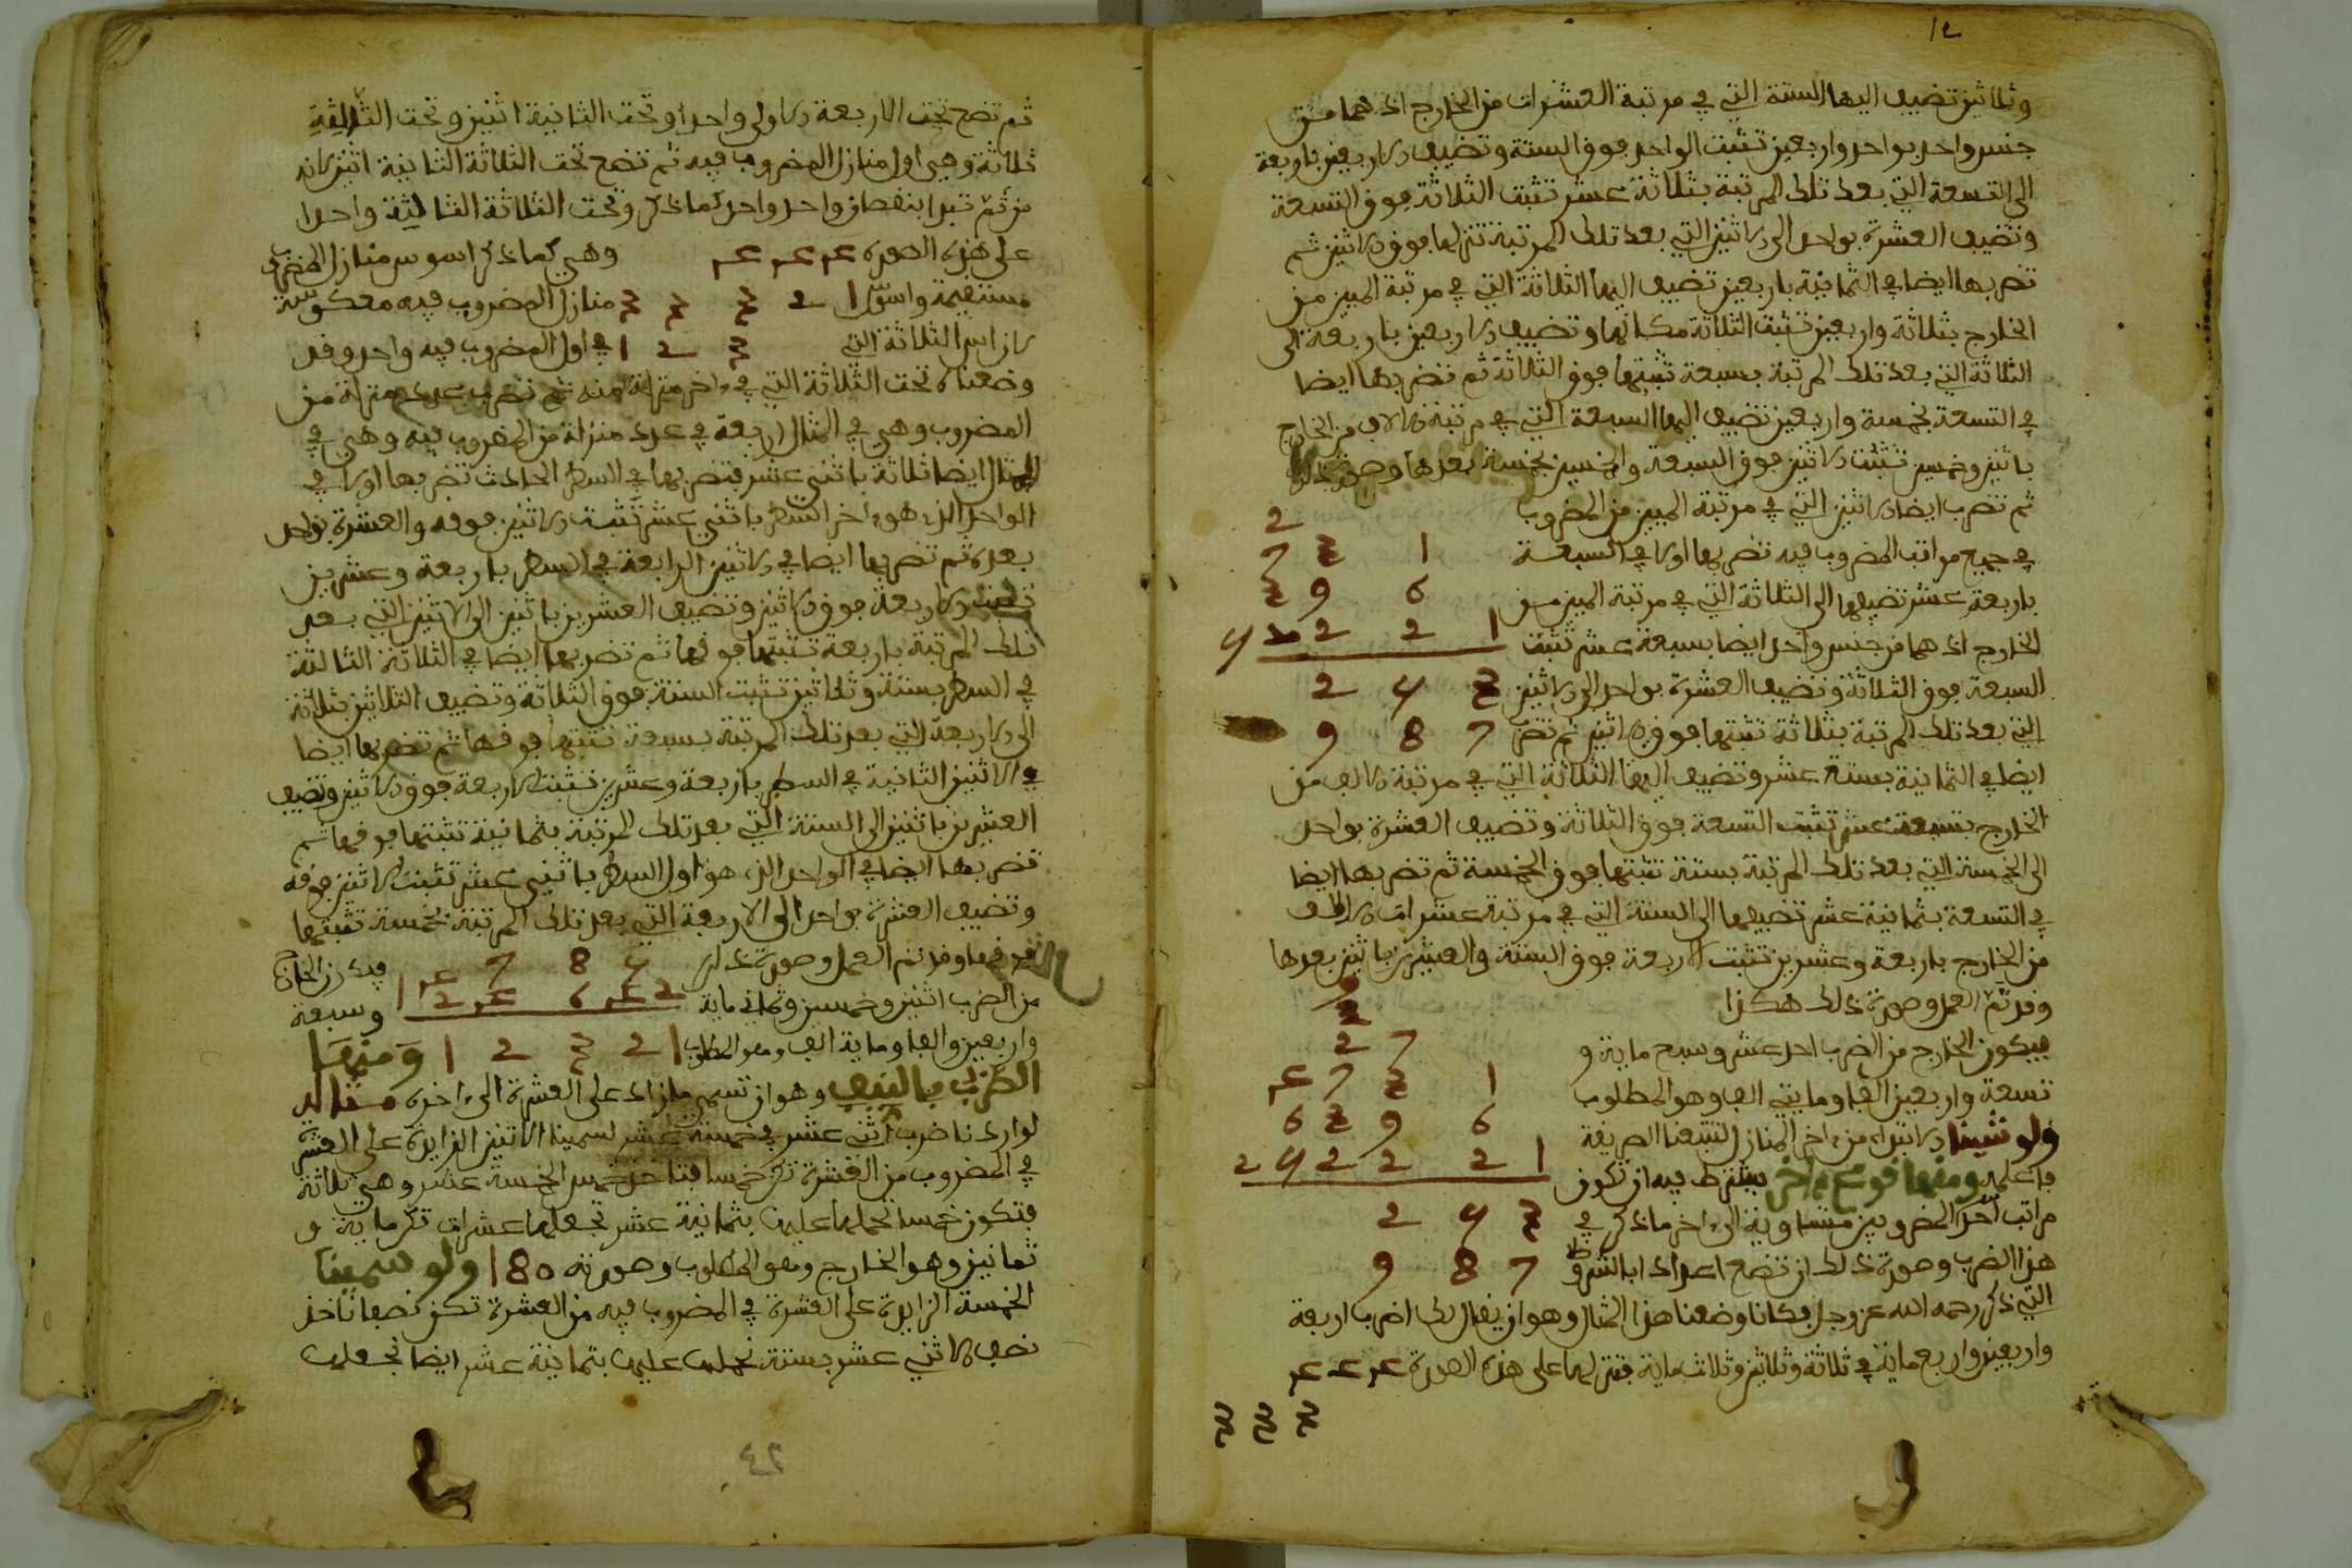 وثلاثين تضيف اليها الستة التي في مرتبة العشرات من الخارج اذ هما من
جنس واحد بواحد واربعين تثبت الواحد فوق الستة وتضيف الاربعين باربعة
الى التسعة التي بعد تلك المرتبة بثلاثة عشر تثبت الثلاثة فوق التسعة
وتضيف العشرة بواحد الى الاثنين التي بعد تلك المرتبة تنزلها فوق الاثنين ثم
تضربها ايضا في الثمانية باربعين تضيف اليها الثلاثة التي في مرتبة الميين من
الخارج بثلاثة واربعين تثبت الثلاثة مكانها وتضيف الاربعين باربعة الى
الثلاثة التي بعد تلك المرتبة بسبعة تثبتها فوق الثلاثة ثم تضربها ايضا
في التسعة بخمسة واربعين تضيف اليها السبعة التي في مرتبة الالاف من الخارج
باثنين وخمسين تثبت الاثنين فوق السبعة والخمسين بخمسة بعدها وصورة ذلك
ثم تضرب ايضا الاثنين التي في مرتبة الميين من المضروب
في جميع مراتب المضروب فيه تضربها اولا في السبعة
باربعة عشر تضيفها الى الثلاثة التي في مرتبة الميين من
الخارج اذ هما من جنس واحد ايضا بسبعة عشر تثبت
السبعة فوق الثلاثة وتضيف العشرة بواحد الى الاثنين
3 4 2
التي بعد تلك المرتبة بثلاثة تثبتها فوق الاثنين ثم تضر
7 8 9
ايضا في الثمانية بستة عشر وتضيف اليها الثلاثة التي في مرتبة الالف من
الخارج بتسعة عشر تثبت التسعة فوق الثلاثة وتضيف العشرة بواحد
الى الخمسة التي بعد تلك المرتبة بستة تثبتها فوق الخمسة ثم تضربها ايضا
في التسعة بثمانية عشر تضيفها الى الستة التي في مرتبة عشرات الالف
من الخارج باربعة وعشرين تثبت الاربعة فوق الستة والعشرين باثنين بعدها
وقد تم العمل وصورة ذلك هكذا
فيكون الخارج من الضرب احد عشر وسبع ماية و
تسعة واربعين الفا ومايتي الف وهو المطلوب
ولو شينا الابتداء من اخر المنازل لتبعنا الطريقة
فاعلمه ومنها نوع اخر يشترط فيه ان تكون
مراتب احد المضروبين متساوية الى اخر ما ذكر في
هذا الضرب وصورة ذلك ان تضع اعدادا بالشروط
التي ذكر رحمه الله عز وجل فكانا وضعنا هذا المثال وهو ان يقال لك اضرب اربعة
واربعين واربع ماية في ثلاثة وثلاثين وثلاث ماية فتنزلها على هذه الصورة 444
333
ثم تضع تحت الاربعة الاولى واحدا وتحت الثانية اثنين وتحت الثالثة
ثلاثة وهي اول منازل المضروب فيه ثم تضع تحت الثلاثة الثانية اثنين لانه
من ثم تبدا بنقصان واحد واحد كما ذكر وتحت الثلاثة الثالثة واحدا
على هذه الصورة 444 وهي كما ذكر اسوس منازل المضروب
مستقيمة واسوس 1 2 3 3 3 منازل المضروب فيه معكوسة
لان اس الثلاثة التي 3 2 1 في اول المضروب فيه واحد وقد
وضعناه تحت الثلاثة التي في اخر منزلة منه ثم تضرب عدد منزلة من
المضروب وهي في المثال اربعة في عدد منزلة من المضروب فيه وهي في
المثال ايضا ثلاثة باثني عشر فتضربها في السطر الحادث تضربها اولا في
الواحد الذي هو اخر السطر باثني عشر تثبت الاثنين فوقه والعشرة بواحد
بعده ثم تضربها ايضا في الاثنين الرابعة في السطر باربعة وعشرين
تثبت الاربعة فوق الاثنين وتضيف العشرين باثنين الى الاثنين التي بعد
تلك المرتبة باربعة تثبتها فوقها ثم تضربها ايضا في الثلاثة الثالثة
في السطر بستة وثلاثين تثبت الستة فوق الثلاثة وتضيف الثلاثين بثلاثة
الى الاربعة التي بعد تلك المرتبة بسبعة تثبتها فوقها ثم تضربها ايضا
في الاثنين الثانية في السطر باربعة وعشرين تثبت الاربعة فوق الاثنين وتضيف
العشرين باثنين الى الستة التي بعد تلك المرتبة بثمانية تثبتها فوقها ثم
تضربها ايضا في الواحد الذي هو اول السطر باثني عشر تثبت الاثنين فوقه
وتضيف العشرة بواحد الى الاربعة التي بعد تلك المرتبة بخمسة تثبتها
فوقها وقد تم العمل وصورة ذلك فيكون الخارج
من الضرب اثنين وخمسين وثماني ماية وسبعة
واربعين الفا وماية الف وهو المطلوب 1 2 3 2 1 ومنها
الضرب بالنيف وهو ان تسمي ما زاد على العشرة الى اخره مثاله
لو اردنا ضرب اثني عشر في خمسة عشر لسمينا الاثنين الزايدة على العشرة
في المضروب من العشرة تكن خمسا فتاخذ خمس الخمسة عشر وهي ثلاثة
فتكون خمسا تحملها عليه بثمانية عشر تجعلها عشرات تكن ماية و
ثمانين وهو الخارج وهو المطلوب وصورته 180 ولو سمينا
الخمسة الزايدة على العشرة في المضروب فيه من العشرة تكن نصفا تاخذ
نصف الاثني عشر بستة تحمله عليه بثمانية عشر ايضا تجعله
٤٢